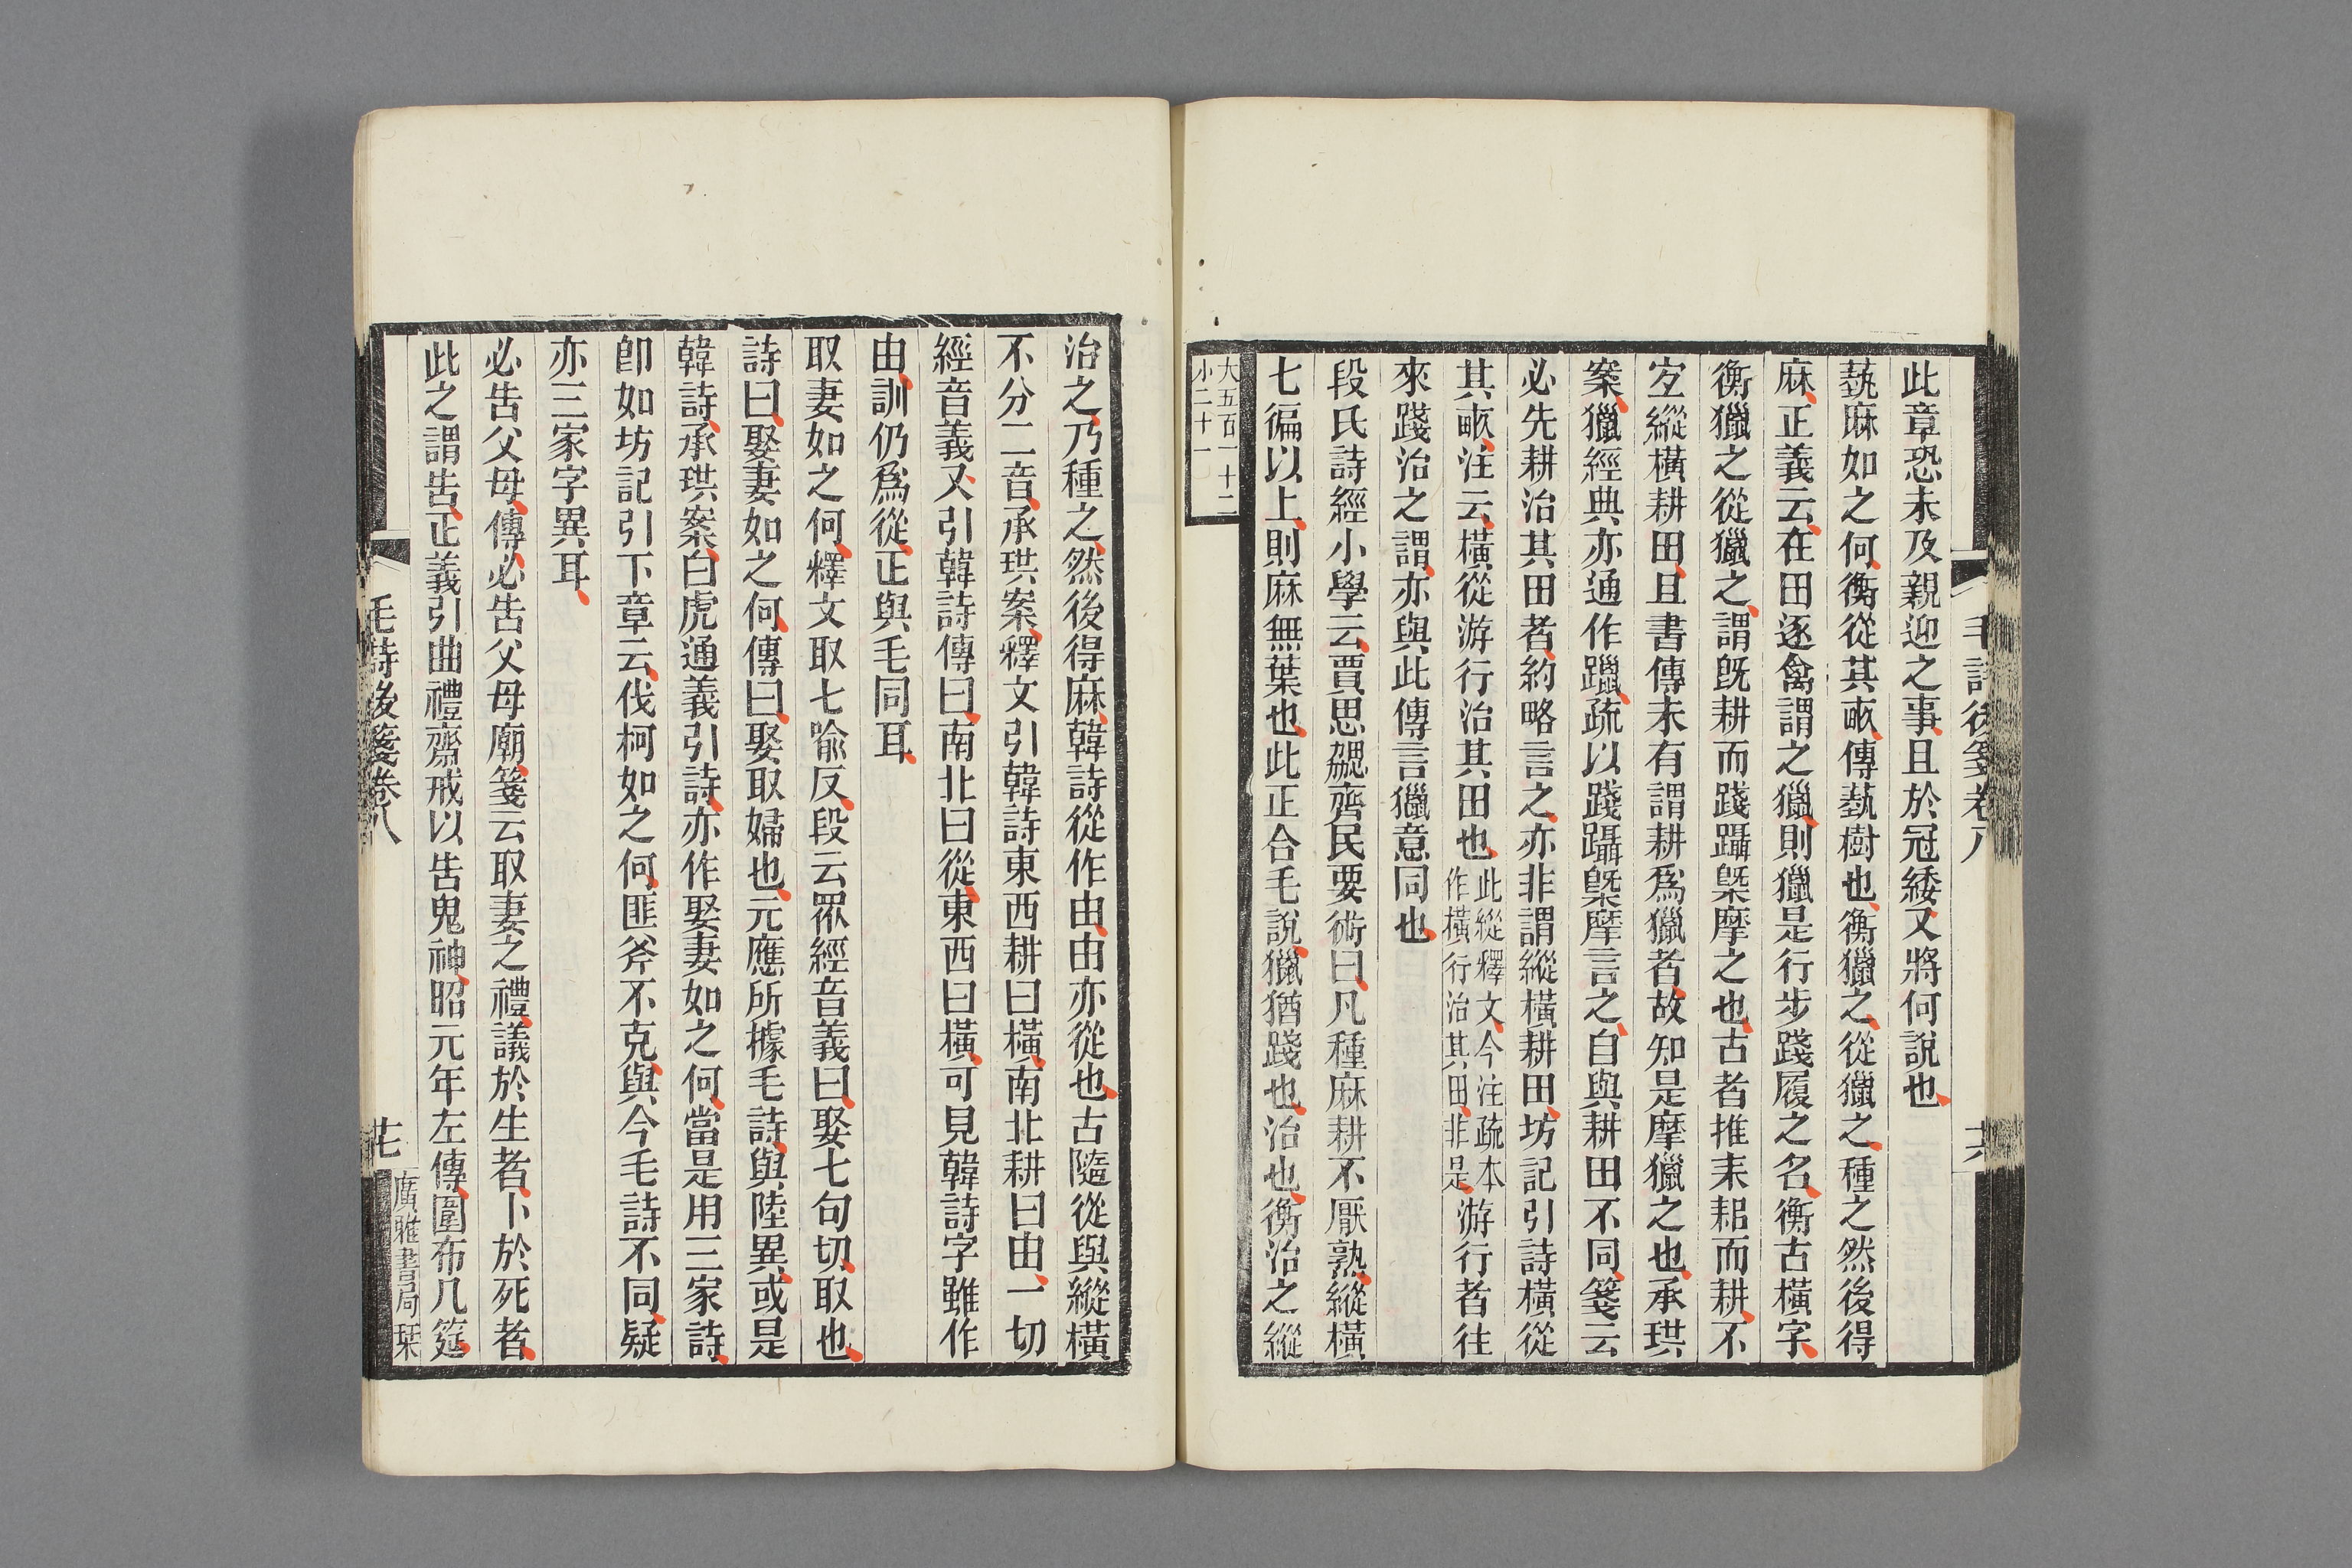 此章恐未及親迎之事且於冠緌又將何說也
蓺麻如之何衡從其畝傳蓺樹也衡獵之從獵之種之然後得
麻正義云在田逐禽謂之獵則獵是行步踐履之名衡古橫字
衡獵之從獵之謂旣耕而踐躡槩摩之也古者推耒耜而耕不
宐縱橫耕田且書傳未有謂耕爲獵者故知是摩獵之也承珙
案獵經典亦通作躐疏以踐躡槩摩言之自與耕田不同箋云
必先耕治其田者約略言之亦非謂縱橫耕田坊記引詩橫從
其畝注云橫從游行治其田也此縱釋文今注疏本作橫行治其田非是游行者往
來踐治之謂亦與此傳言獵意同也
段氏詩經小學云賈思勰齊民要術曰凡種麻耕不厭熟縱橫
七徧以上則麻無葉也此正合毛說獵猶踐也治也衡治之縱
大五百一十二
小二十一
毛詩後箋卷八
治之乃種之然後得麻韓詩從作由由亦從也古隨從與縱橫
不分二音承珙案釋文引韓詩東西耕曰橫南北耕曰由一切
經音義又引韓詩傳曰南北曰從東西曰橫可見韓詩字雖作
由訓仍爲從正與毛同耳
取妻如之何釋文取七喻反段云眾經音義曰娶七句切取也
詩曰娶妻如之何傳曰娶取婦也元應所據毛詩與陸異或是
韓詩承珙案白虎通義引詩亦作娶妻如之何當是用三家詩
卽如坊記引下章云伐柯如之何匪斧不克與今毛詩不同疑
亦三家字異耳
必告父母傳必告父母廟箋云取妻之禮議於生者卜於死者
此之謂告正義引曲禮齋戒以告鬼神昭元年左傳圍布几筵
毛詩後箋卷八
廣雅書局栞